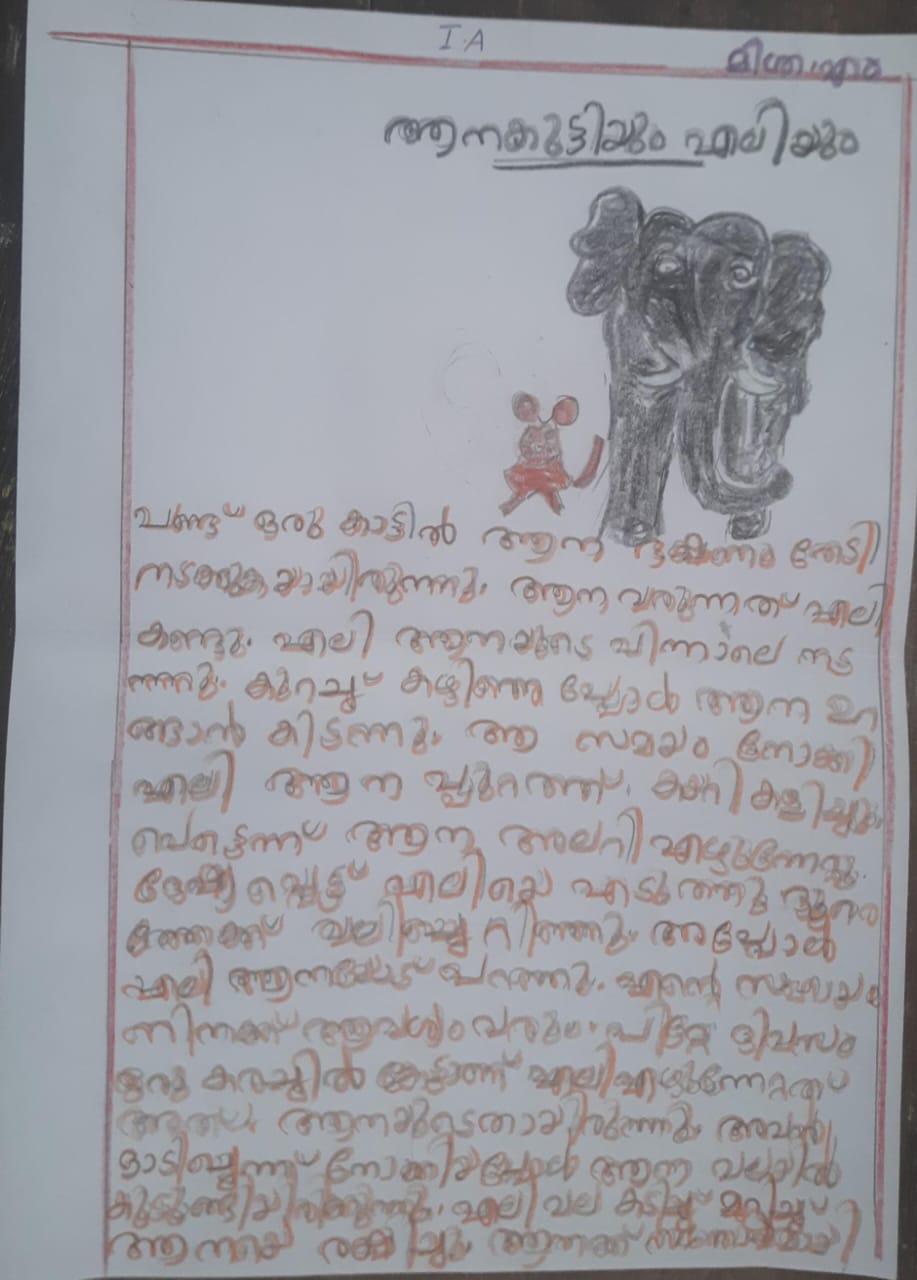 I.A
ആനകുട്ടിയും എലിയും
പണ്ട് ഒരു കാട്ടിൽ ആന ഭക്ഷണം തേടി
നടക്കുകയായിരുന്നു. ആന വരുന്നത് എലി
കണ്ടു. എലി ആനയുടെ പിന്നാലെ നട
ന്നു. കുറച്ച് കഴിഞ്ഞ പ്പോൾ ആന ഉറ
ങ്ങാൻ കിടന്നു. ആ സമയം നോക്കി
എലി ആന പ്പുറത്ത് കയറി കളിച്ചു.
പെട്ടെന്ന് ആന അലറി എഴുന്നേറ്റു.
ദേഷ്യ പ്പെട്ട് എലിയെ എടുത്തു ദൂരേ
ത്തേക്ക് വലിച്ചെറിഞ്ഞു. അപ്പോൾ
എലി ആനയോട് പറഞ്ഞു. എന്റെ സഹായം
നിനക്ക് ആവശ്യം വരും. പിറ്റേ ദിവസം
ഒരു കരച്ചിൽ കേട്ടാണ് എലി എഴുന്നേറ്റത്
അത് ആനയുടെതായിരുന്നു. അവൻ
ഓടിച്ചെന്ന് നോക്കിയപ്പോൾ ആന വലയിൽ
കുടുങ്ങിയിരിക്കുന്നു. എലി വല കടിച്ച് മുറിച്ച്
ആനയെ രക്ഷിച്ചു. ആനക്ക് സന്തോഷമായി